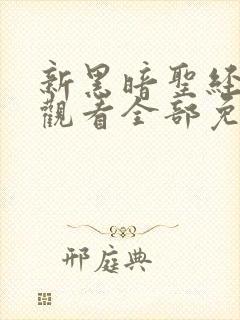 新黑暗聖経
觀看全部免
邢庭典